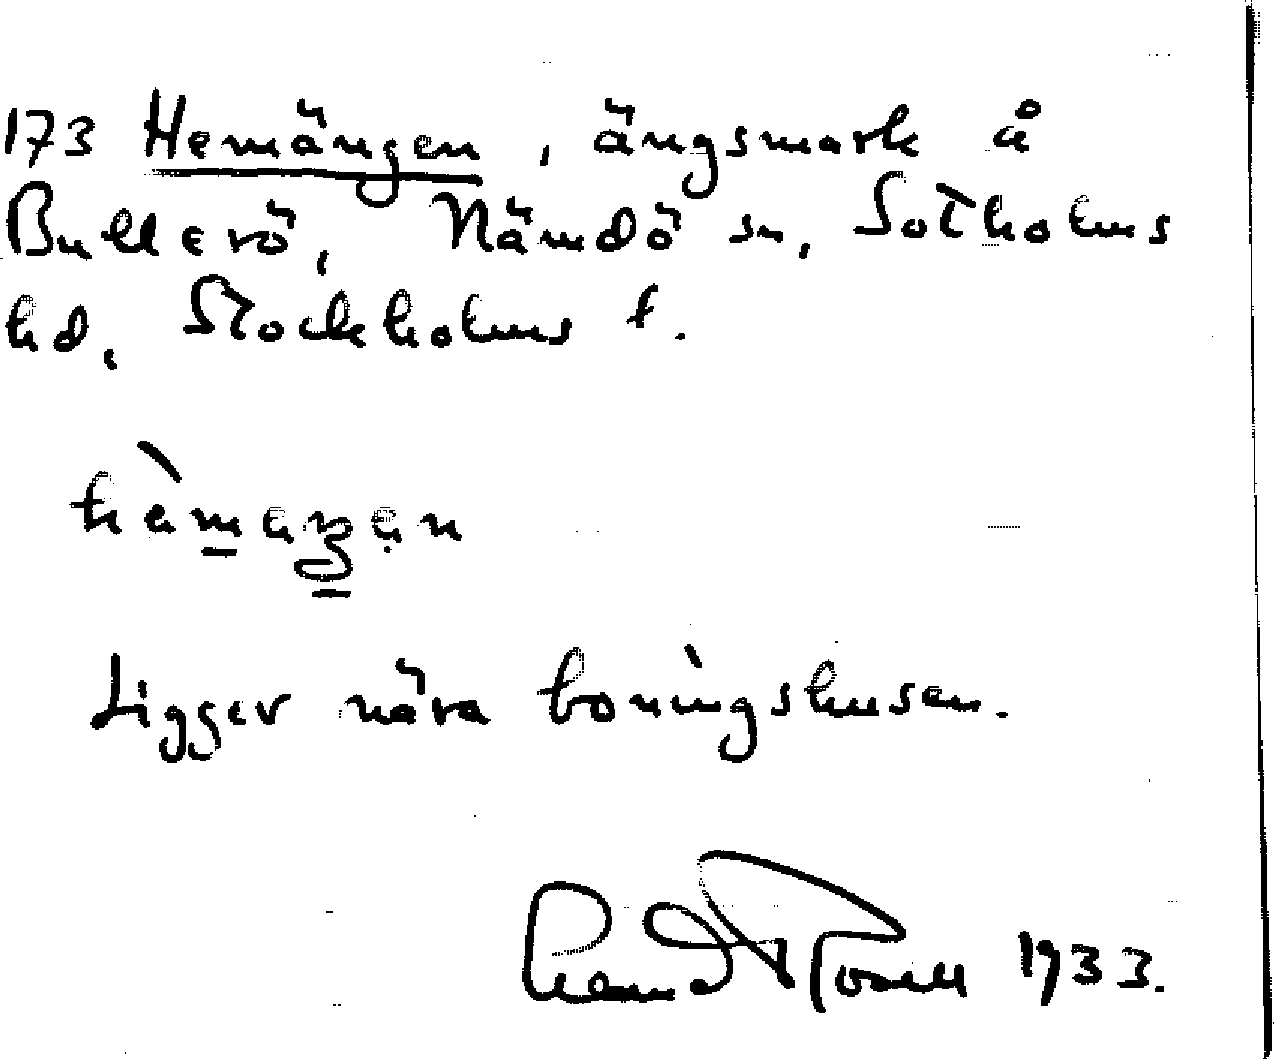 173 Hemängen, ängsmark å
Bullerö, Nämdö sn, Sotholms
hd, Stockholms l.
Ligger nära boningshusen.
1933.